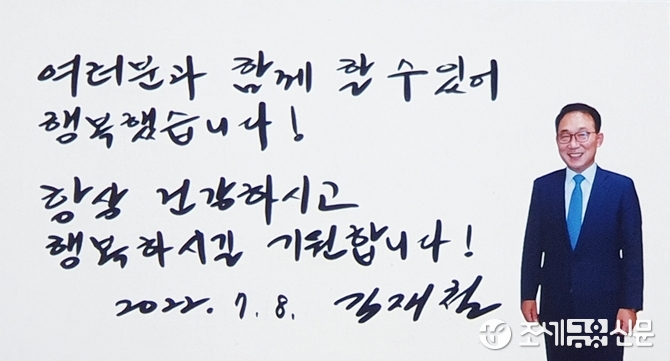 여러분과 함께 할 수 있어
행복했습니다!
항상 건강하시고
행복하시길 기원합니다!
2022. 7. 8. 김재철
조세금융신문